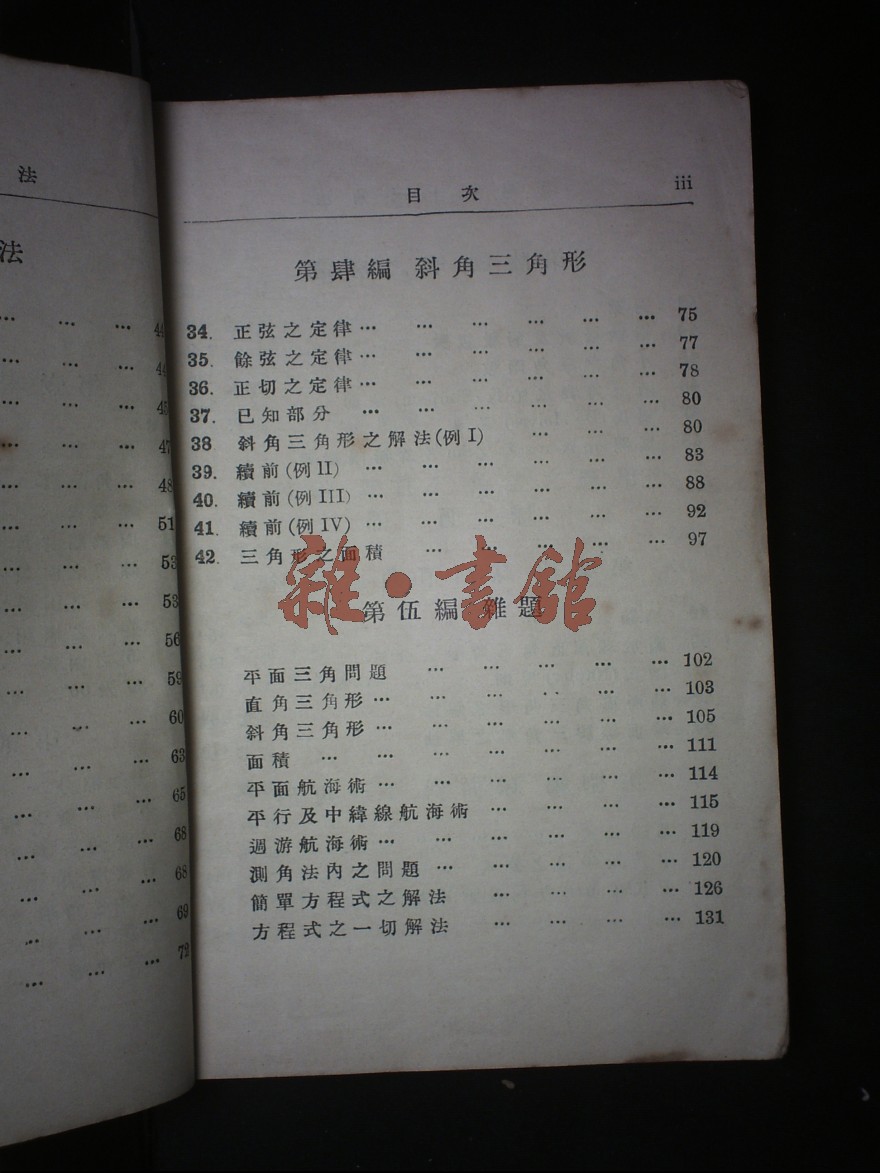 法
法
44
44
45
47
48
51
53
53
56
59
60
63
65
68
68
69
72
目 次 iii
第肆編 斜角三角形
34. 正弦之定律… … … … … … 75
35. 餘弦之定律… … … … … … 77
36. 正切之定律… … … … … … 78
37. 已知部分 … … … … … … 80
38 斜角三角形之解法(例 I) … … … 80
39. 續前(例 II) … … … … … … 83
40. 續前(例 III) … … … … … … 88
41. 續前(例 IV) … … … … … … 92
42. 三角形之面積 … … … … … 97
第伍編 雜題
平面三角問題 … … … … … 102
直角三角形… … … … … … 103
斜角三角形… … … … … … 105
面積 … … … … … … … 111
平面航海術… … … … … … 114
平行及中緯線航海術 … … … … 115
週游航海術… … … … … … 119
測角法內之問題 … … … … … 120
簡單方程式之解法 … … … … 126
方程式之一切解法 … … … … 131
雜·書館